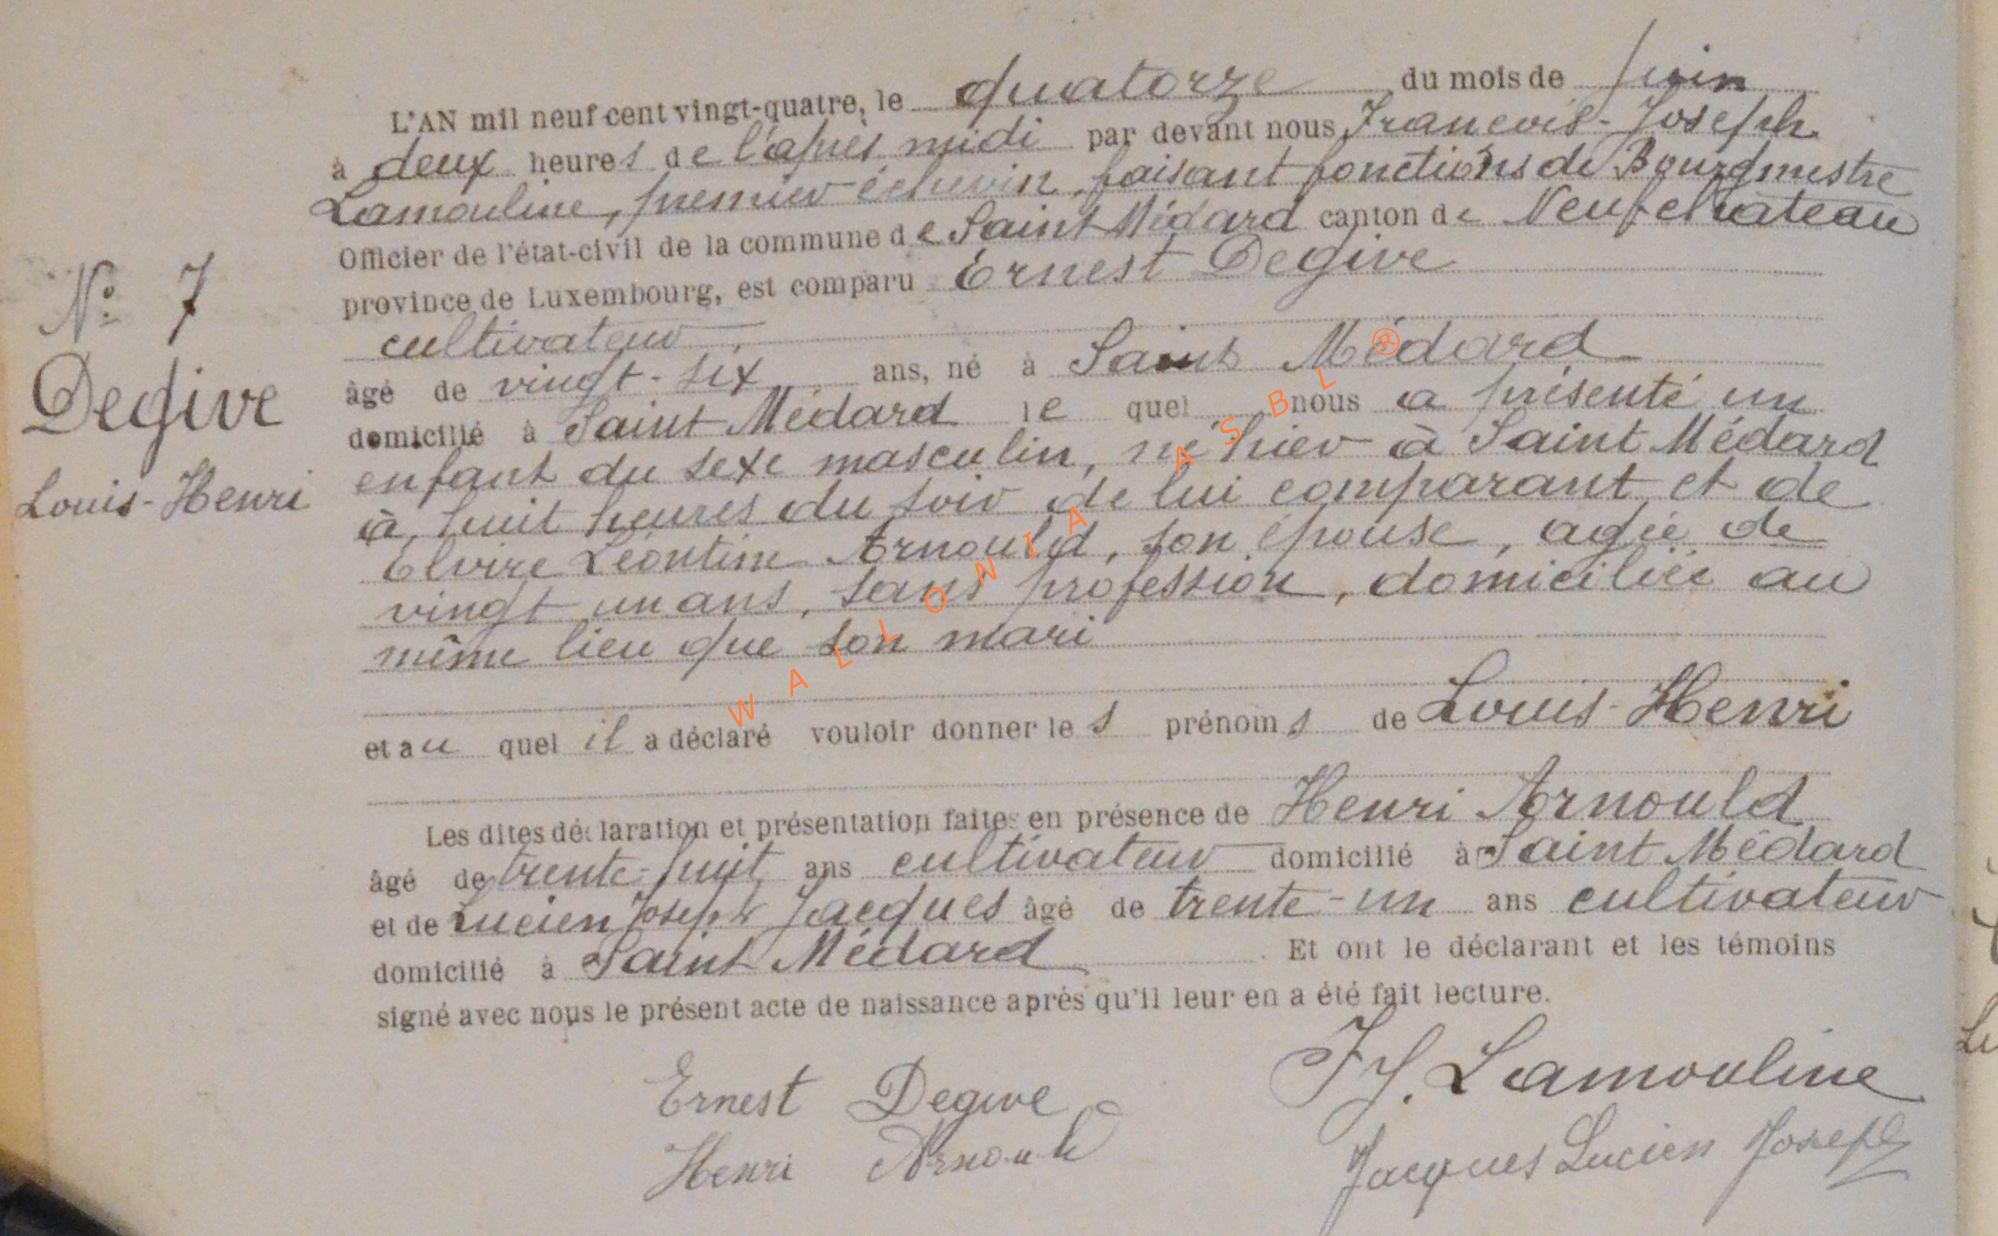 L'AN mil neuf cent vingt-quatre, le quatorze du mois de juin
à deux heures de l'après midi par devant nous François-Joseph
Lamouline, premier échevin, faisant fonctions de Bourgmestre
Officier de l'état-civil de la commune de Saint Médard canton de Neufchateau
province de Luxembourg, est comparu Ernest Degive
cultivateur
âgé de vingt-six ans, né à Saint Médard
domicilié à Saint Médard le quel nous a présenté un
enfant du sexe masculin, né hier à Saint Médard
à huit heures du soir de lui comparant et de
Elvire Léontine Arnould, son épouse, agée de
vingt un ans, sans profession, domiciliée au
même lieu que son mari
et au quel il a déclaré vouloir donner les prénoms de Louis-Henri
Les dites déclaration et présentation faites en présence de Henri Arnould
âgé de trente-huit ans cultivateur domicilié à Saint Médard
et de Lucien Joseph Jacques âgé de trente-un ans cultivateur
domicilié à Saint Médard. Et ont le déclarant et les témoins
signé avec nous le présent acte de naissance aprés qu'il leur en a été fait lecture.
Ernest Degive
F J. Lamouline
Henri Arnould
Jacques Lucien Joseph
N° 7
Degive
Louis-Henri
WALLONIA ASBL ®